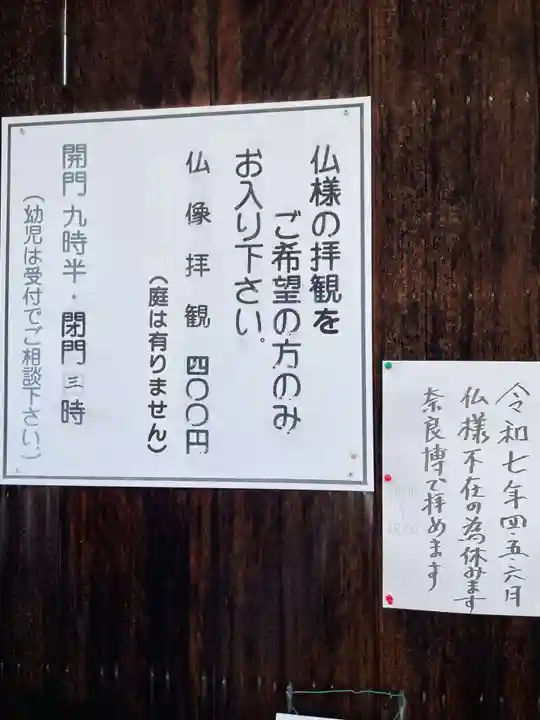 仏様の拝観を
ご希望の方のみ
お入り下さい。
仏像拝観 四〇〇円
（庭は有りません）
開門 九時半・閉門 三時
（幼児は受付でご相談下さい。）
令和七年四.五六月
仏様不在の為休みます
奈良博で拝めます